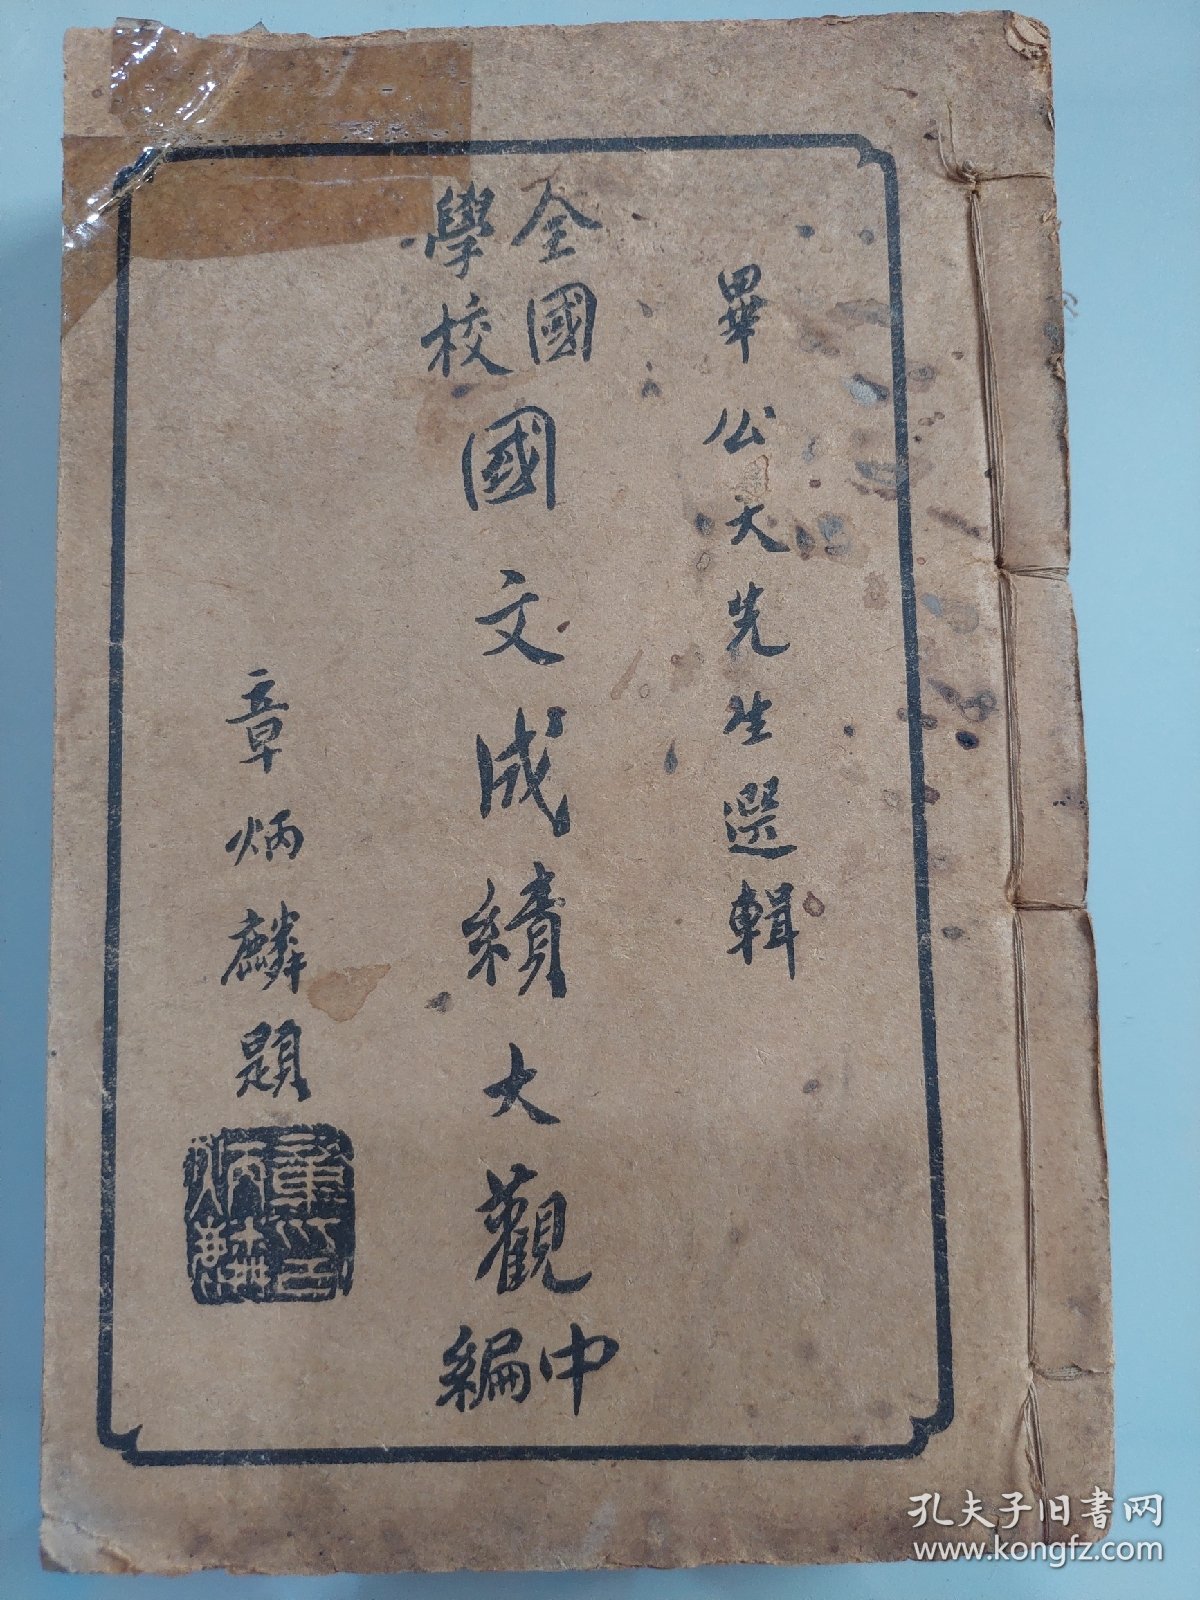 畢公天先生選輯
全國
學校
國文成績大觀
中
編
章炳麟題
孔夫子旧书网
www.kongfz.com